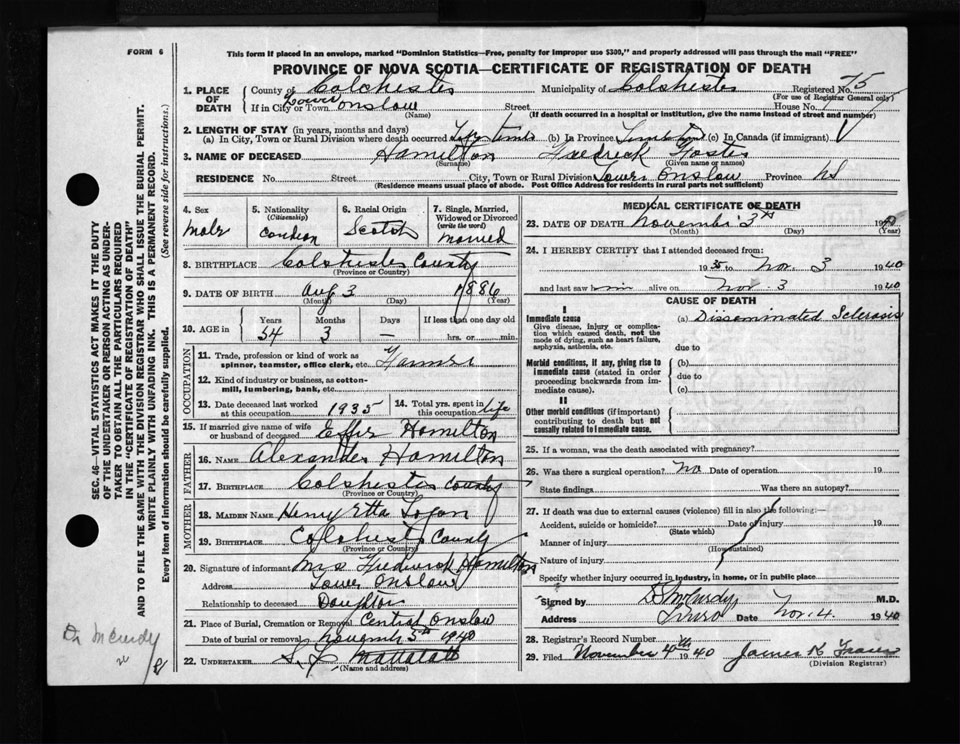 FORM 6
This form if placed in an envelope, marked "Dominion Statistics—Free, penalty for improper use $300," and properly addressed will pass through the mail "FREE"
PROVINCE OF NOVA SCOTIA—CERTIFICATE OF REGISTRATION OF DEATH
SEC. 46—VITAL STATISTICS ACT MAKES IT THE DUTY
OF THE UNDERTAKER OR PERSON ACTING AS UNDER-
TAKER TO OBTAIN ALL THE PARTICULARS REQUIRED
IN THE "CERTIFICATE OF REGISTRATION OF DEATH"
AND TO FILE THE SAME WITH THE DIVISION REGISTRAR WHO SHALL ISSUE THE BURIAL PERMIT.
WRITE PLAINLY WITH UNFADING INK. THIS IS A PERMANENT RECORD.
Every item of information should be carefully supplied. (See reverse side for instructions.)
1. PLACE OF DEATH County of Colchester Municipality of Colchester Registered No. 75
(For use of Registrar General only)
If in City or Town Lower Onslow Street House No.
(Name) (If death occurred in a hospital or institution, give the name instead of street and number)
2. LENGTH OF STAY (in years, months and days)
(a) In City, Town or Rural Division where death occurred Life time (b) In Province (c) In Canada (if immigrant)
3. NAME OF DECEASED Hamilton Fredrick Foster
(Surname) (Given name or names)
RESIDENCE No. Street City, Town or Rural Division Lower Onslow Province NS
(Residence means usual place of abode. Post Office Address for residents in rural parts not sufficient)
4. Sex Male
5. Nationality (Citizenship)
6. Racial Origin Scotch
7. Single, Married, Widowed or Divorced (write the word) Married
8. BIRTHPLACE Colchester County
(Province or Country)
9. DATE OF BIRTH Aug 3 1886
(Month) (Day) (Year)
10. AGE in Years Months Days If less than one day old
54 3 — hrs. or min.
OCCUPATION
11. Trade, profession or kind of work as spinner, teamster, office clerk, etc. Farmer
12. Kind of industry or business, as cotton-mill, lumbering, bank, etc.
13. Date deceased last worked at this occupation 1935
14. Total yrs. spent in this occupation life
15. If married give name of wife or husband of deceased Effie Hamilton
FATHER
16. NAME Alexander Hamilton
17. BIRTHPLACE Colchester County
(Province or Country)
MOTHER
18. MAIDEN NAME Henry Etta
19. BIRTHPLACE Colchester County
(Province or Country)
20. Signature of informant Mrs Frederick Hamilton
Address Lower Onslow
Relationship to deceased Daughter
21. Place of Burial, Cremation or Removal Central Onslow
Date of burial or removal 5th 1940
22. UNDERTAKER
(Name and address)
MEDICAL CERTIFICATE OF DEATH
23. DATE OF DEATH November 3rd 1940
(Month) (Day) (Year)
24. I HEREBY CERTIFY that I attended deceased from:
1935 to Nov. 3 1940
and last saw him alive on Nov. 3 1940
CAUSE OF DEATH
I
Immediate cause
Give disease, injury or complication which caused death, not the mode of dying, such as heart failure, asphyxia, asthenia, etc.
(a) Disseminated Sclerosis
due to
Morbid conditions, if any, giving rise to immediate cause (stated in order proceeding backwards from immediate cause).
(b)
due to
(c)
II
Other morbid conditions (if important) contributing to death but not causally related to immediate cause.
25. If a woman, was the death associated with pregnancy?
26. Was there a surgical operation? No Date of operation 19
State findings Was there an autopsy?
27. If death was due to external causes (violence) fill in also the following:—
Accident, suicide or homicide? Date of injury 19
(State which)
Manner of injury
(How sustained)
Nature of injury
Specify whether injury occurred in industry, in home, or in public place
Signed by D. McCurdy M.D.
Address Truro Date Nov. 4 1940
28. Registrar's Record Number
29. Filed November 4th 1940 James K Fraser
(Division Registrar)
Dr McCurdy